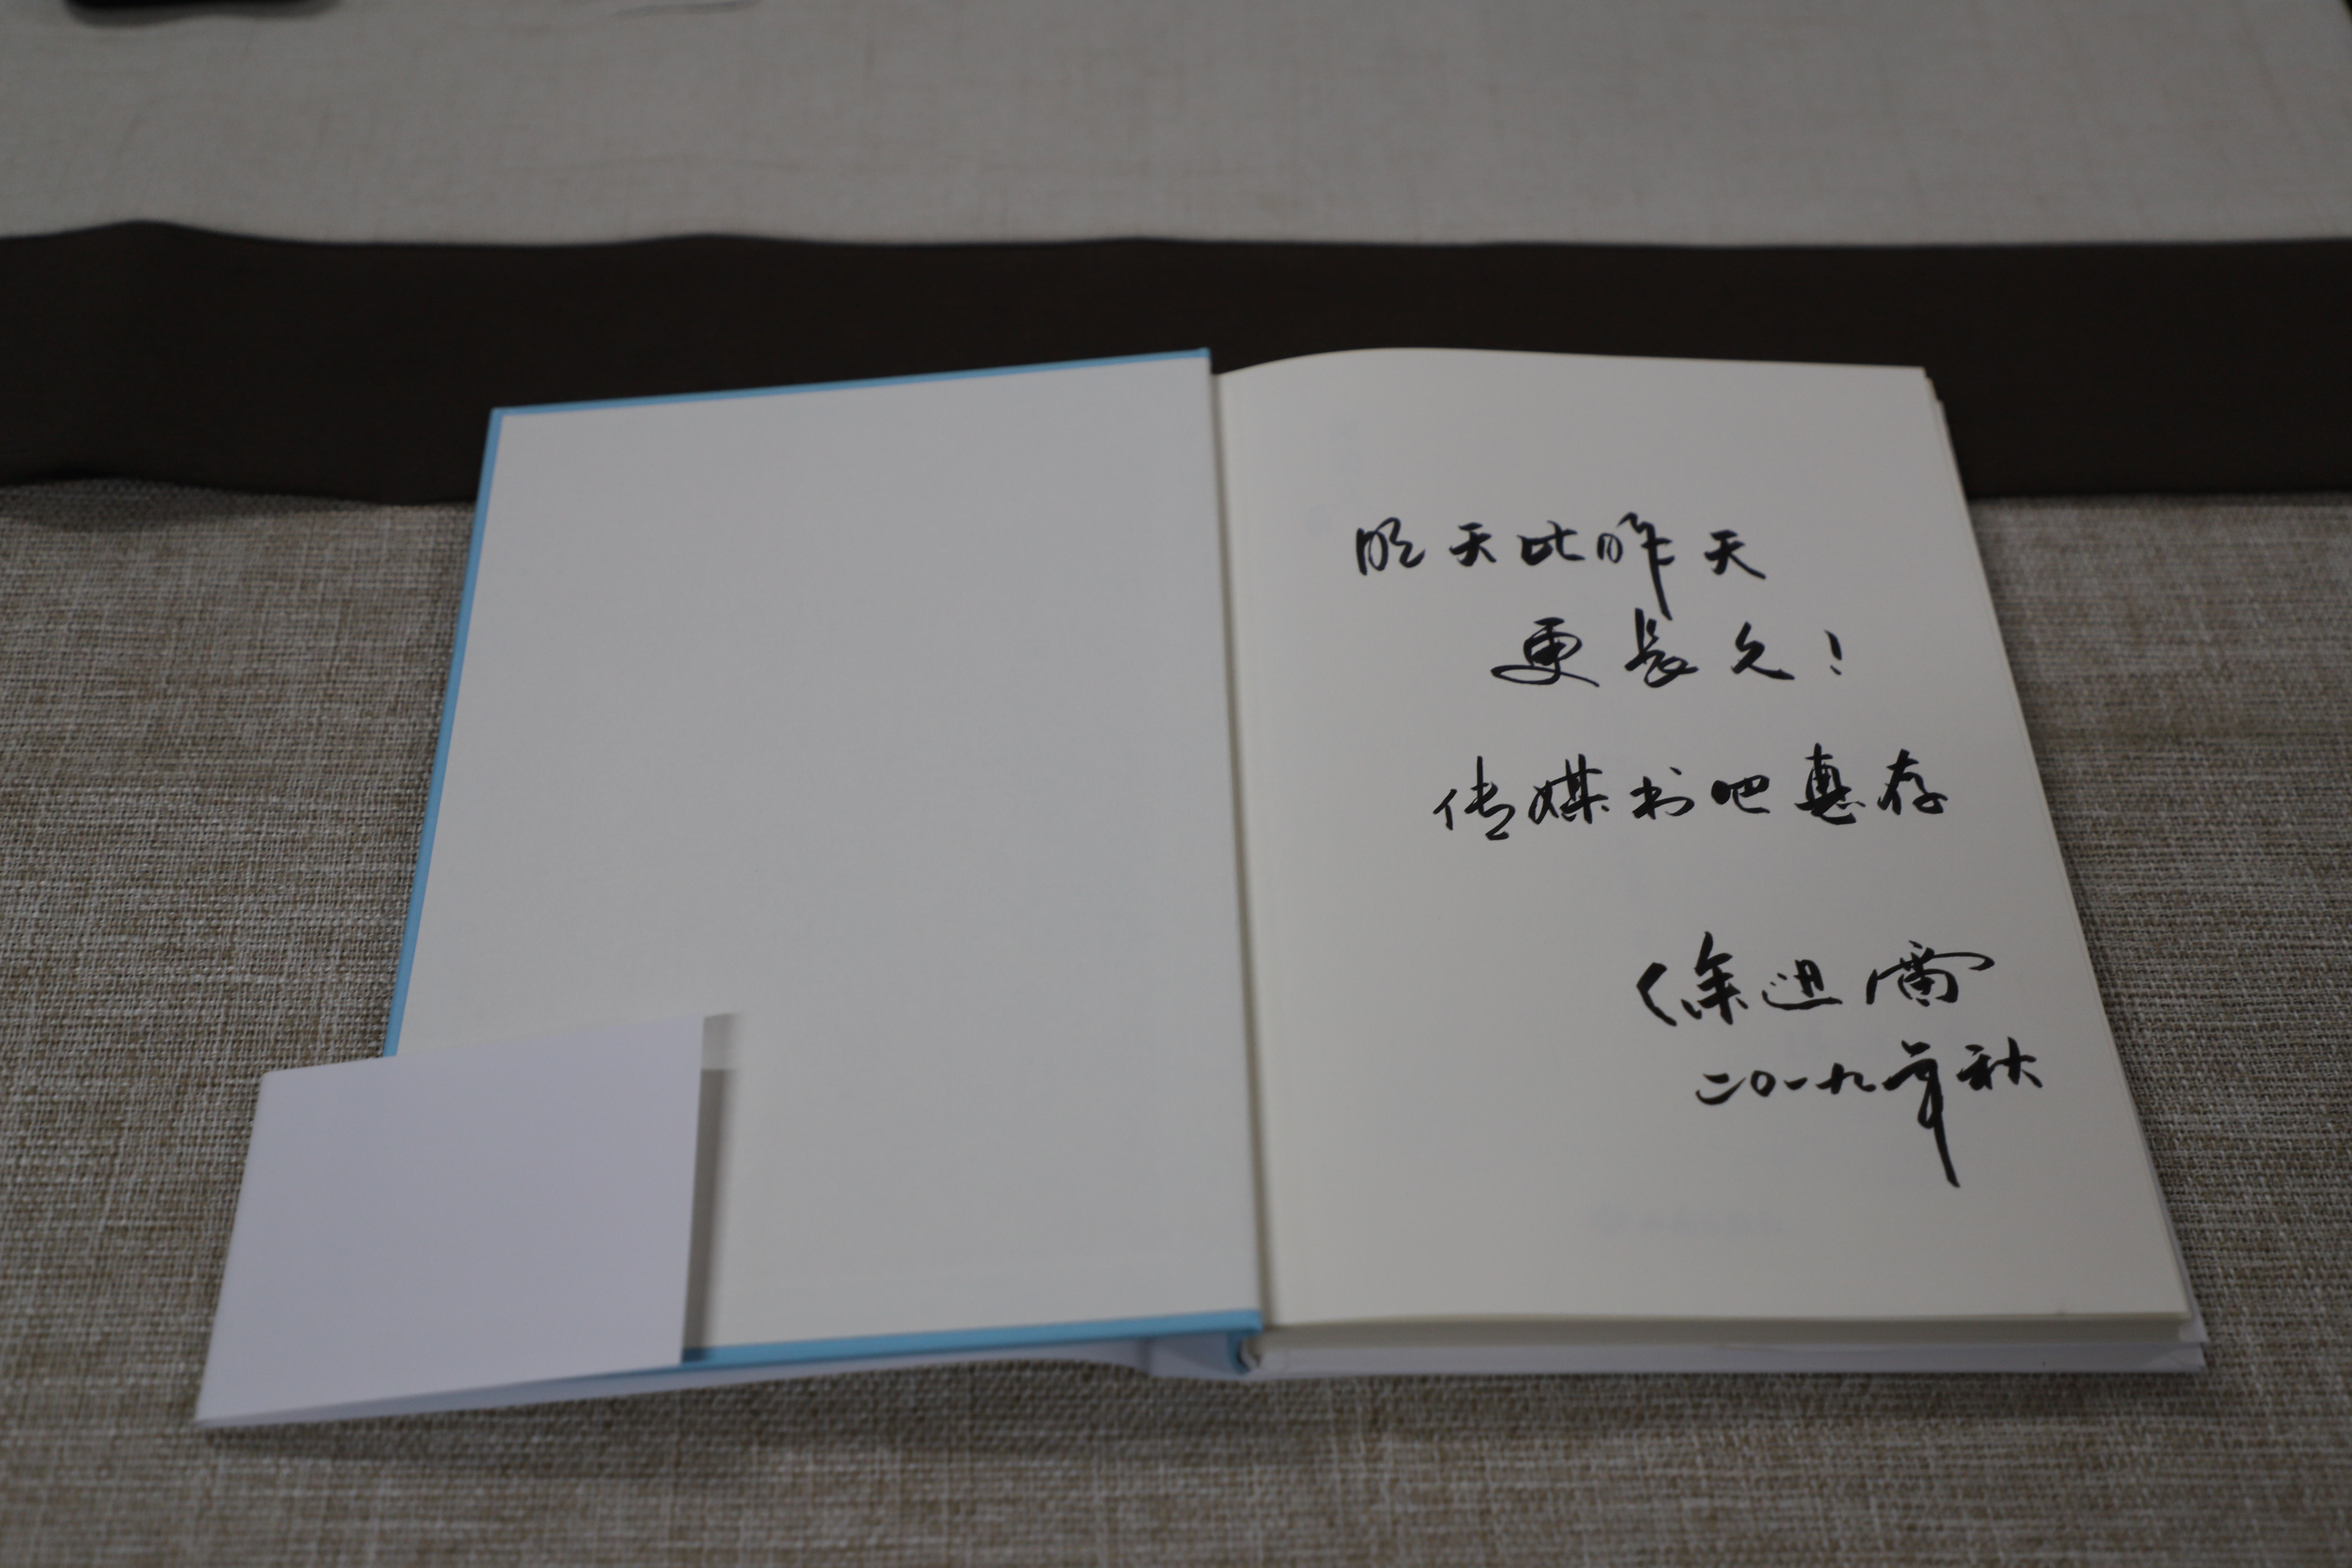 明天比昨天
更长久！
传媒书吧惠存
徐迅雷
二〇一九年秋